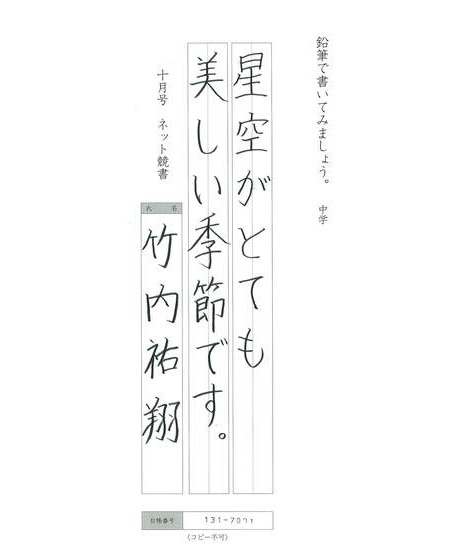 鉛筆で書いてみましょう。 中学
星空がとても
美しい季節です。
十月号 ネット競書
氏名
竹内祐翔
台帳番号 131-7071
(コピー不可)